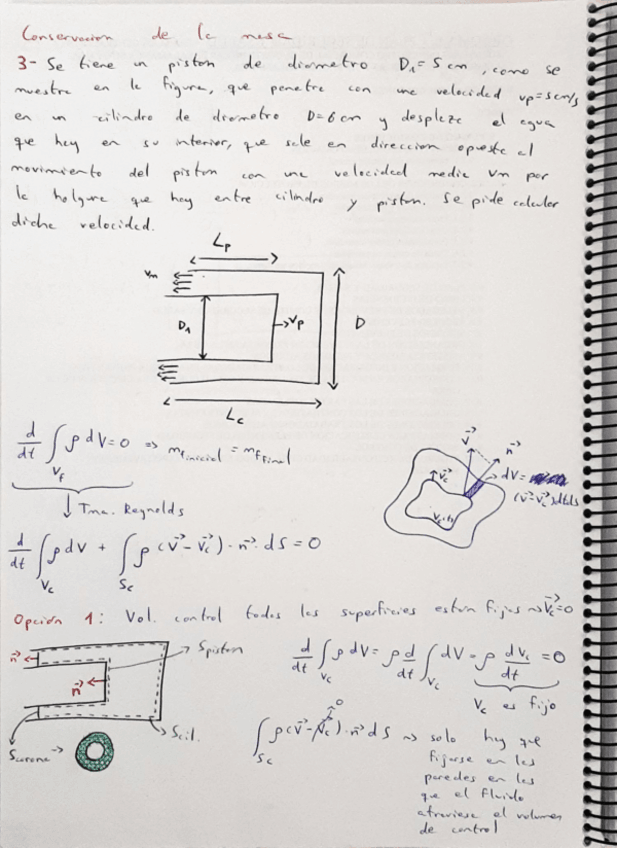 Conservacion de la masa
3- Se tiene un piston de diametro D₁=5cm, como se
muestra en la figura, que penetra con una velocidad vp=5cm/s
en un cilindro de diametro D=6cm y desplaza el agua
que hay en su interior, que sale en direccion opuesta al
movimiento del piston con una velocidad media Vm por
la holgura que hay entre cilindro y piston. Se pide calcular
dicha velocidad.
Lp
Vm
D₁
Vp
D
Lc
d/dt ∫_Vf ρ dV = 0 ⇒ m_f inicial = m_f final
↓ Tma. Reynolds
d/dt ∫_Vc ρ dV + ∫_Sc ρ (v⃗ - v⃗c) · n⃗ · dS = 0
v⃗
n⃗
v⃗c
dV =
(v⃗-v⃗c)dtds
Vc(t)
Opción 1: Vol. control todas las superficies estan fijas ⇝ v⃗c=0
n⃗
n⃗
Spiston
Scil.
Scorona →
d/dt ∫_Vc ρ dV = ρ d/dt ∫_Vc dV = ρ dVc/dt = 0
Vc es fijo
∫_Sc ρ(v⃗ - v⃗c) · n⃗ dS ⇝ solo hy que
0
fijarse en las
paredes en las
que el fluido
atraviesa el volumen
de control